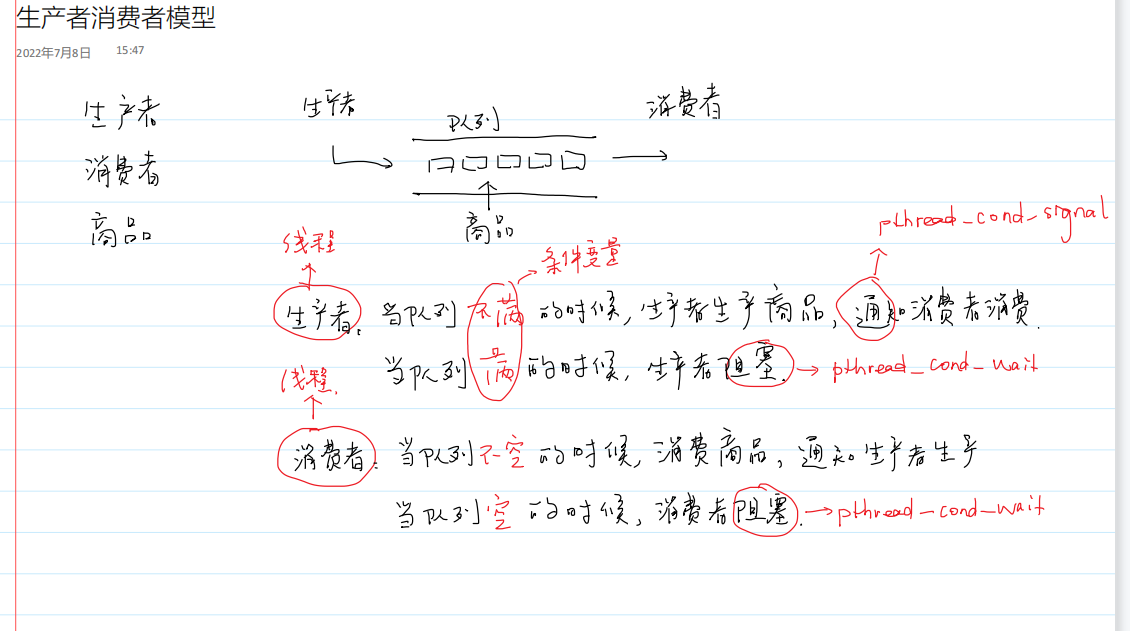 生产者消费者模型
2022年7月8日 15:47
生产者 生产者 队列 消费者
消费者
商品 商品
pthread_cond_signal
线程 条件变量
生产者: 当队列不满的时候, 生产者生产商品, 通知消费者消费.
当队列满的时候, 生产者阻塞. pthread_cond_wait
线程.
消费者: 当队列不空的时候, 消费商品, 通知生产者生产
当队列空的时候, 消费者阻塞. pthread_cond_wait